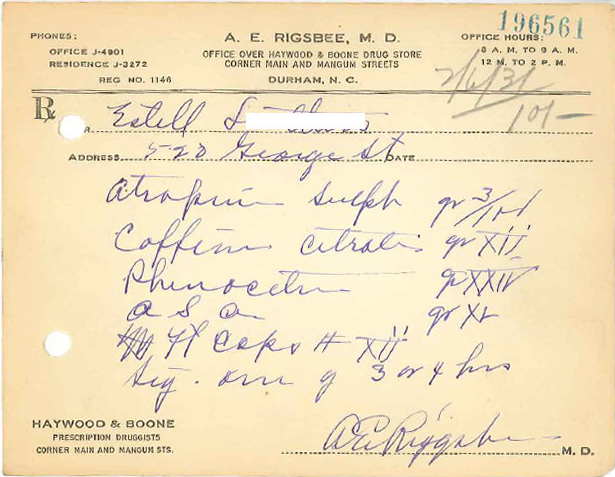 196561
PHONES:
OFFICE J-4901
RESIDENCE J-3272
REG NO. 1146
A. E. RIGSBEE, M. D.
OFFICE OVER HAYWOOD & BOONE DRUG STORE
CORNER MAIN AND MANGUM STREETS
DURHAM, N. C.
OFFICE HOURS:
8 A. M. TO 9 A. M.
12 M. TO 2 P. M.
2/6/31
101-
Rx
Estell
ADDRESS 520 George St DATE
Atropine Sulph gr 3/101
Caffine citrate gr XII
Phenacetin gr XXIV
A S A gr XL
Ft Caps # XII
Sig. one q 3 or 4 hrs
HAYWOOD & BOONE
PRESCRIPTION DRUGGISTS
CORNER MAIN AND MANGUM STS.
A E Rigsbee M. D.